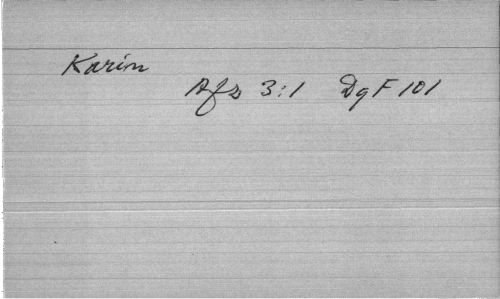 Karin
Afz 3:1 DgF 101